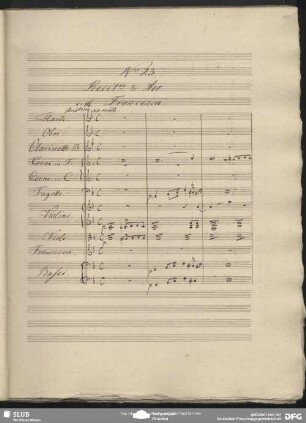 No 23
Recit.vo & Air
Francesca
Andte con moto
Flauti
Oboi
Clarinetti B.
Corni in F.
Corni in C.
Fagotti
Violini
Viole
Francesca
Bassi
SLUB
DFG